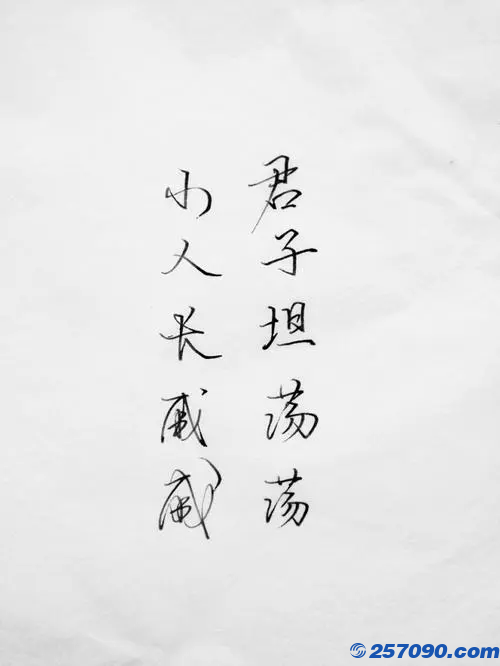 君子坦荡荡
小人长戚戚
257090.com